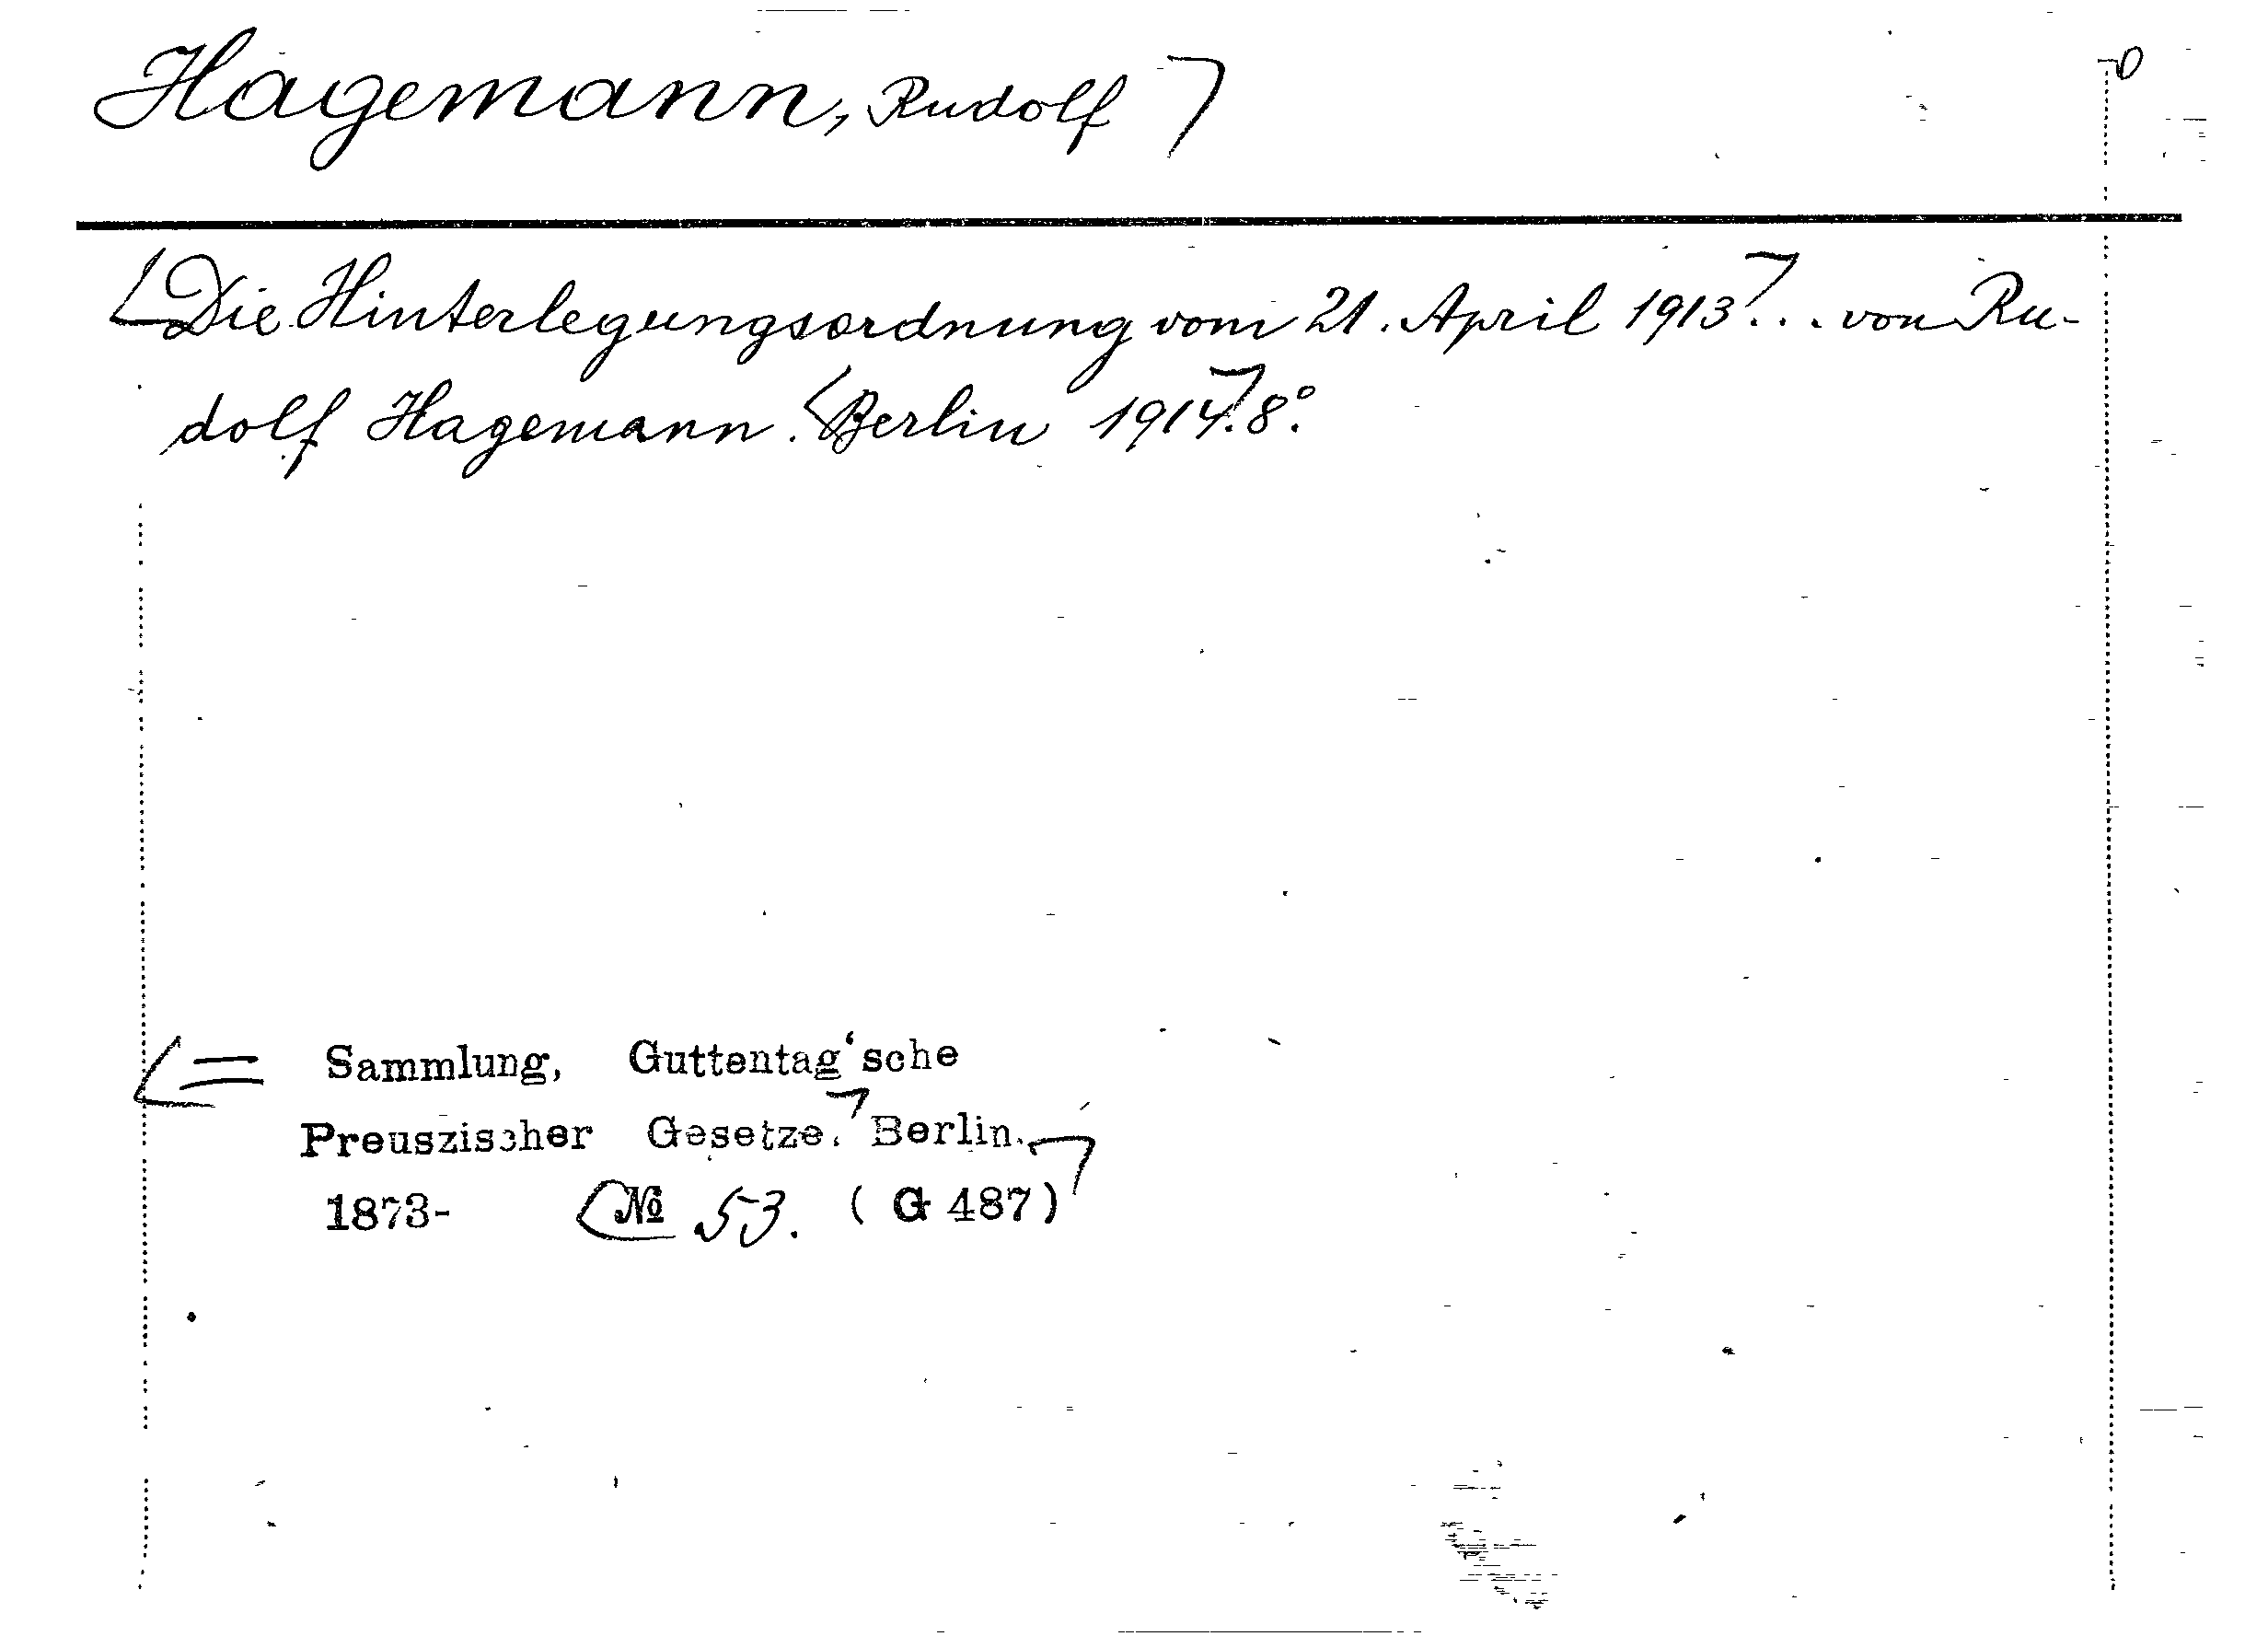 Hagemann, Rudolf
Die Hinterlegungsordnung vom 21. April 1913... von Ru-
dolf Hagemann. Berlin 1914. 8°.
= Sammlung, Guttentag'sche
Preuszischer Gesetze. Berlin.
1873- № 53. (G 487)